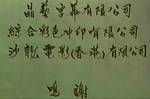 晶藝字幕有限公司
綜合彩色沖印有限公司
沙龍電影(香港)有限公司
鳴謝